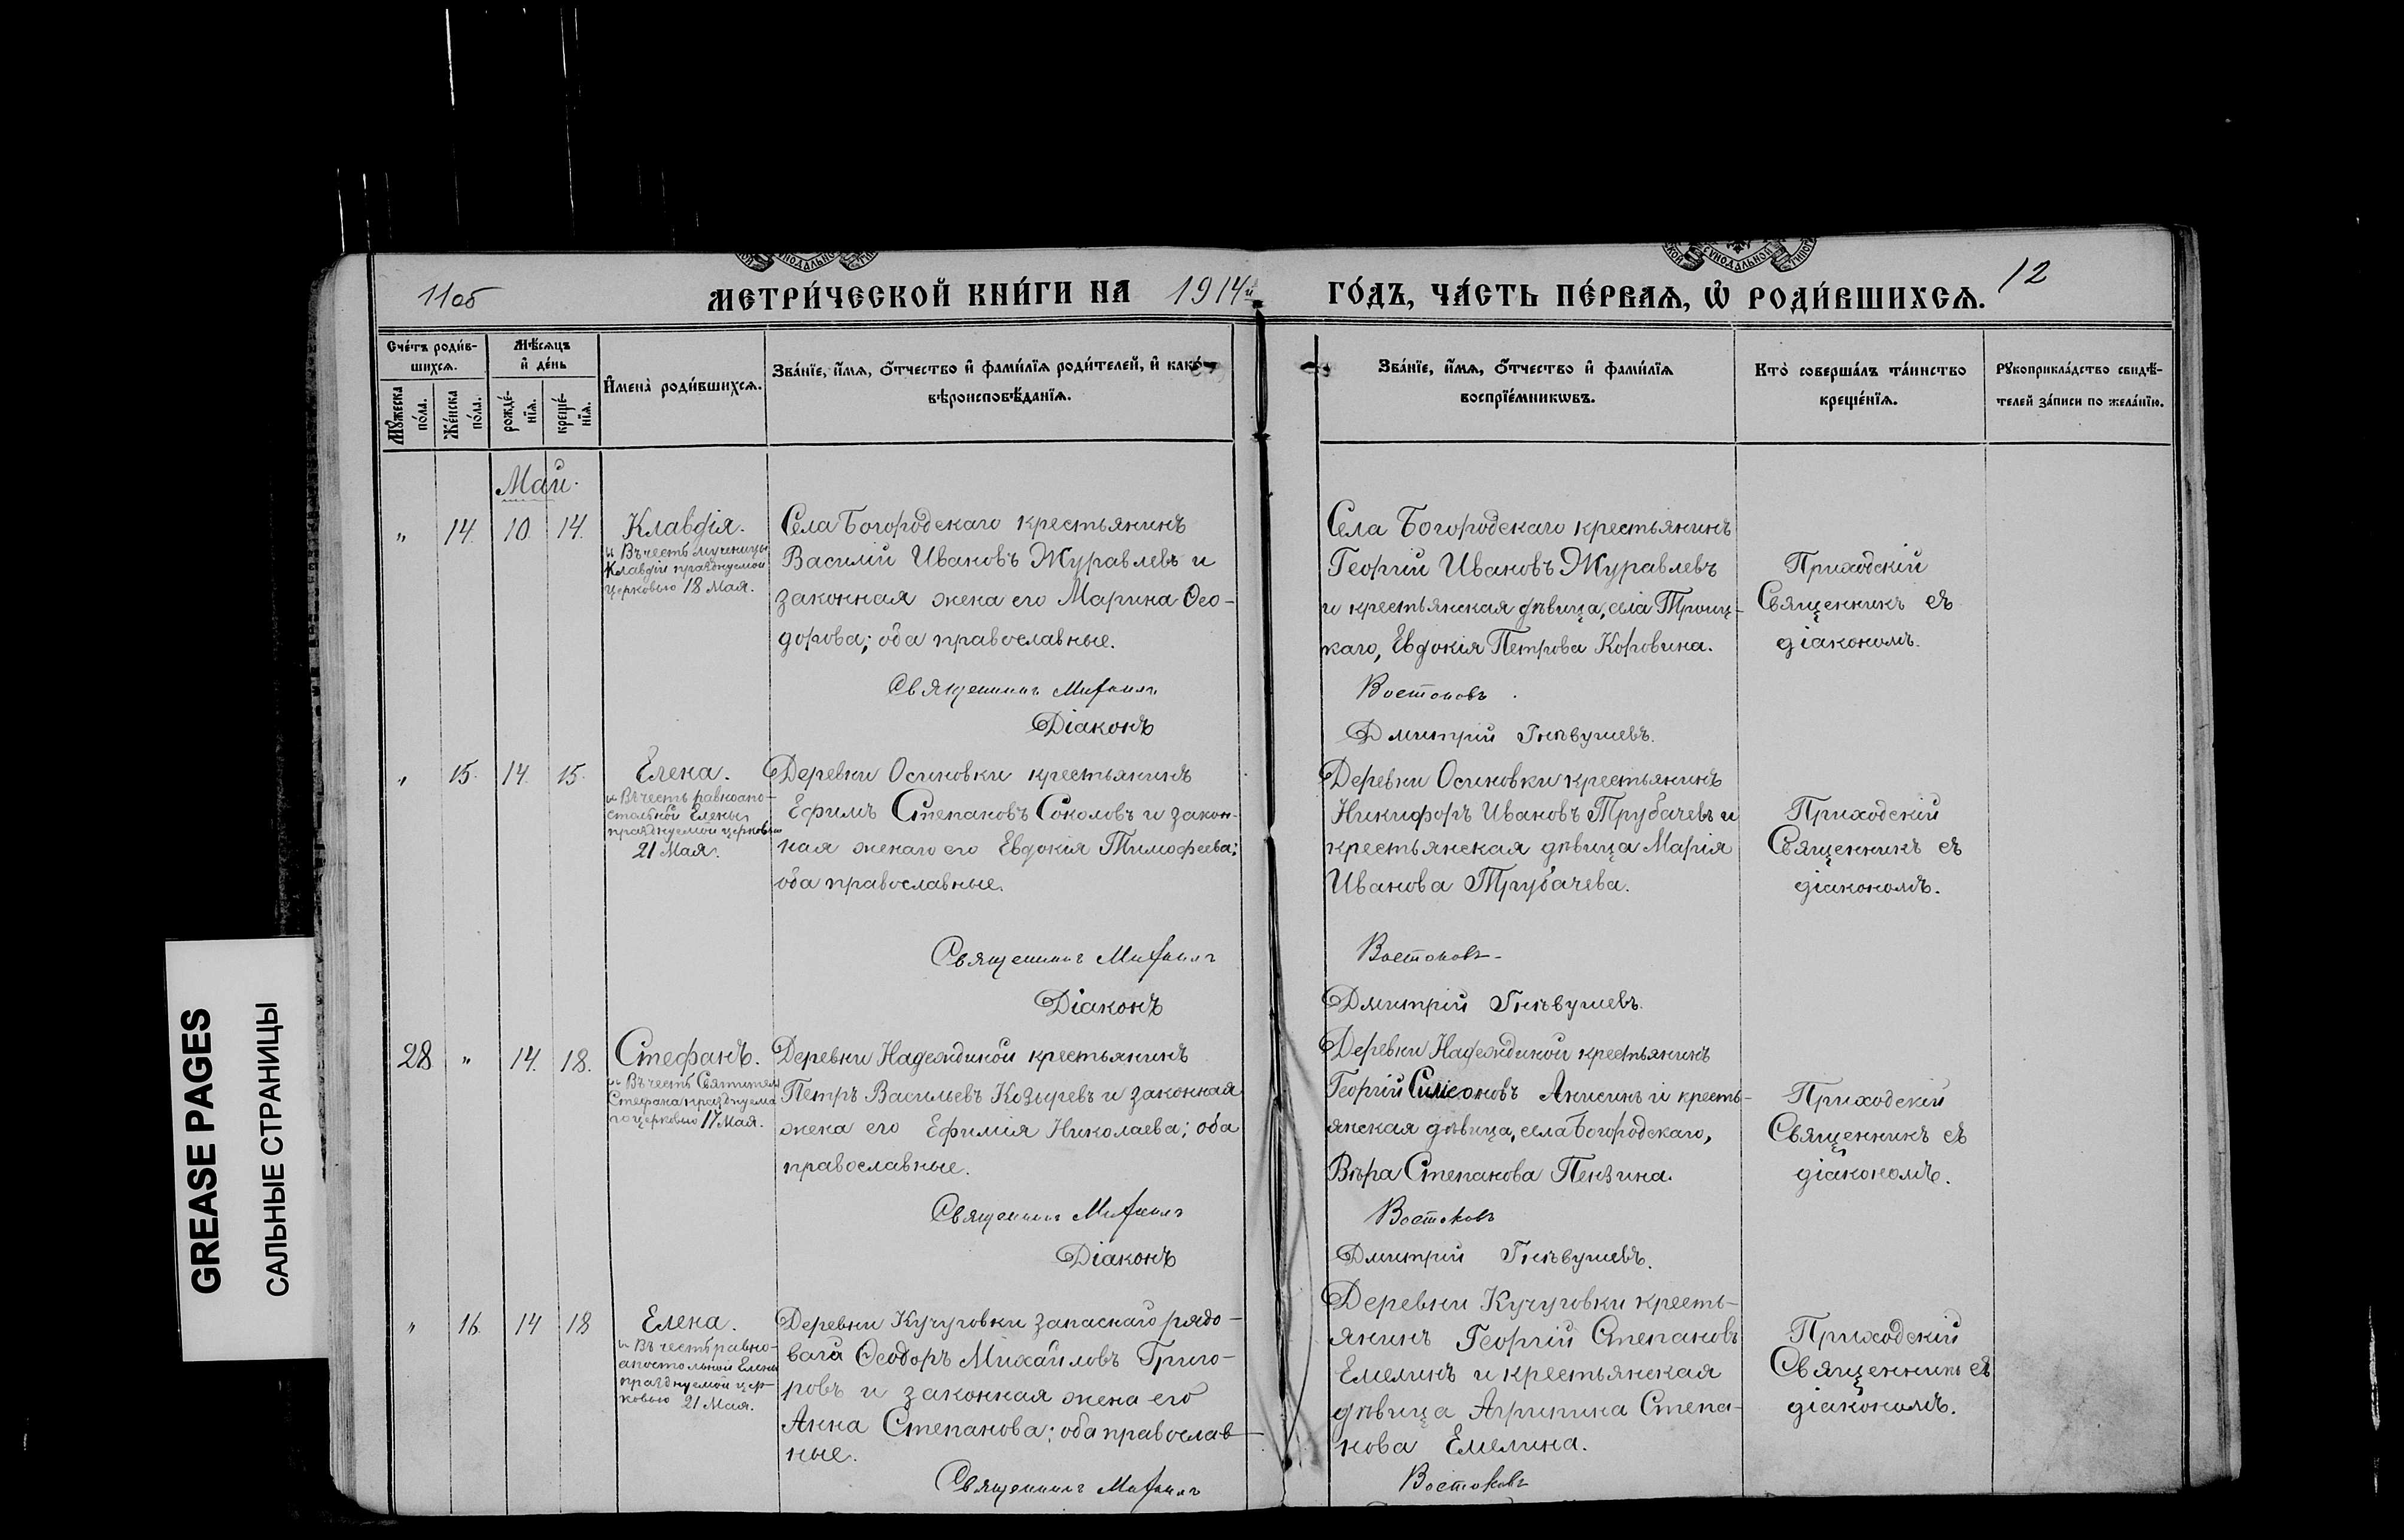 11об
МЕТРИ́ЧЕСКОЙ КНИ́ГИ НА 1914й
ГО́ДЪ, ЧА́СТЬ ПЕ́РВАѦ, Ѡ҆ РОДИ́ВШИХСѦ.
12
Сче́тъ роди́в-
шихсѧ.
Мꙋ́жеска
по́ла.
Же́нска
по́ла.
Мѣ́сѧцъ
и҆ де́нь
рожде́-
нїѧ.
креще́-
нїѧ.
И҆мена̀ роди́вшихсѧ.
Зва́нїе, и҆́мѧ, ѻ҆́тчество и҆ фами́лїѧ роди́телей, и҆ како́-
вѣроисповѣ́данїѧ.
Зва́нїе, и҆́мѧ, ѻ҆́тчество и҆ фами́лїѧ
воспрїе́мникѡвъ.
Кто̀ соверша́лъ та́инство
креще́нїѧ.
Рꙋкоприкла́дство свидѣ́-
телей за́писи по жела́нїю.
Май.
" 14. 10. 14.
Клавдія.
Въ честь мученицы
Клавдіи празднуемой
церковью 18 Мая.
Села Богородскаго крестьянинъ
Василій Ивановъ Журавлевъ и
законная жена его Марина Ѳео-
дорова; оба православные.
Священникъ Михаилъ
Діаконъ
Села Богородскаго крестьянинъ
Георгій Ивановъ Журавлевъ
и крестьянская дѣвица, села Троиц-
каго, Евдокія Петрова Коровина.
Востоковъ
Дмитрій Гнѣвушевъ.
Приходскій
Священникъ съ
діакономъ.
" 15. 14. 15.
Елена.
Въ честь равноапо-
стольной Елены
празднуемой церковью
21 Мая.
Деревни Осиновки крестьянинъ
Ефимъ Степановъ Соколовъ и закон-
ная женаго его Евдокія Тимофеева;
оба православные.
Священникъ Михаилъ
Діаконъ
Деревни Осиновки крестьянинъ
Никифоръ Ивановъ Трубачевъ и
крестьянская дѣвица Марія
Иванова Трубачева.
Востоковъ
Дмитрій Гнѣвушевъ.
Приходскій
Священникъ съ
діакономъ.
28 " 14. 18.
Стефанъ.
Въ честь Святителя
Стефана празднуема
го церковью 17 Мая.
Деревни Надеждиной крестьянинъ
Петръ Васильевъ Козыревъ и законная
жена его Ефимія Николаева; оба
православные.
Священникъ Михаилъ
Діаконъ
Деревни Надеждиной крестьянинъ
Георгій Симеоновъ Анисинъ и кресть-
янская дѣвица, села Богородскаго,
Вѣра Степанова Пензина.
Востоковъ
Дмитрій Гнѣвушевъ.
Приходскій
Священникъ съ
діакономъ.
" 16. 14 18
Елена.
Въ честь равно-
апостольной Елены
празднуемой цер-
ковью 21 Мая.
Деревни Кучуговки запаснаго рядо-
ваго Ѳеодоръ Михайловъ Григо-
ровъ и законная жена его
Анна Степанова; оба православ-
ные.
Священникъ Михаилъ
Деревни Кучуговки кресть-
янинъ Георгій Степановъ
Емелинъ и крестьянская
дѣвица Агрипина Степа-
нова Емелина.
Востоковъ
Приходскій
Священникъ съ
діакономъ.
GREASE PAGES
САЛЬНЫЕ СТРАНИЦЫ